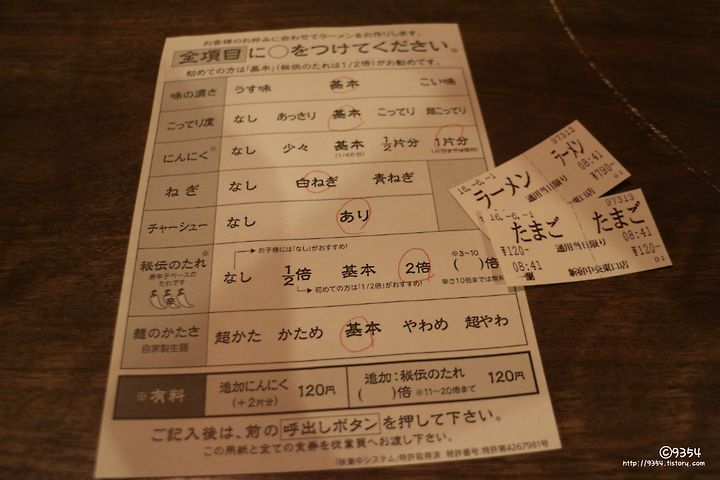 お客様のお好みに合わせてラーメンをお作りします。
全項目に○をつけてください。
初めての方は「基本」(秘伝のたれは1/2倍)がお勧めです。
味の濃さ うす味 基本 こい味
こってり度 なし あっさり 基本 こってり 超こってり
にんにく※ なし 少々 基本 1/2片分 1片分
(1/4片分) 1片分までは無料
ねぎ なし 白ねぎ 青ねぎ
チャーシュー なし あり
お子様には「なし」がおすすめ!
秘伝のたれ※ なし 1/2倍 基本 2倍 ( )倍
唐辛子ベースのたれです
辛
※3~10
初めての方は「1/2倍」がおすすめ!
辛さ10倍までは無料
麺のかたさ 超かた かため 基本 やわめ 超やわ
自家製生麺
※有料 追加にんにく 120円 追加:秘伝のたれ 120円
(+2片分) ( )倍 ※11~20倍まで
ご記入後は、前の呼出しボタンを押して下さい。
この用紙と全ての食券を従業員へお渡し下さい。
「味集中システム」特許取得済 特許番号:特許第4267981号
97312
16.-6.-1
ラーメン
ラーメン
08:41
通用当日限り
¥790-
01
97313
16.-6.-1
たまご
たまご
¥120-
08:41
通用当日限り
08:41
¥120-
01
©9354
http://9354.tistory.com/